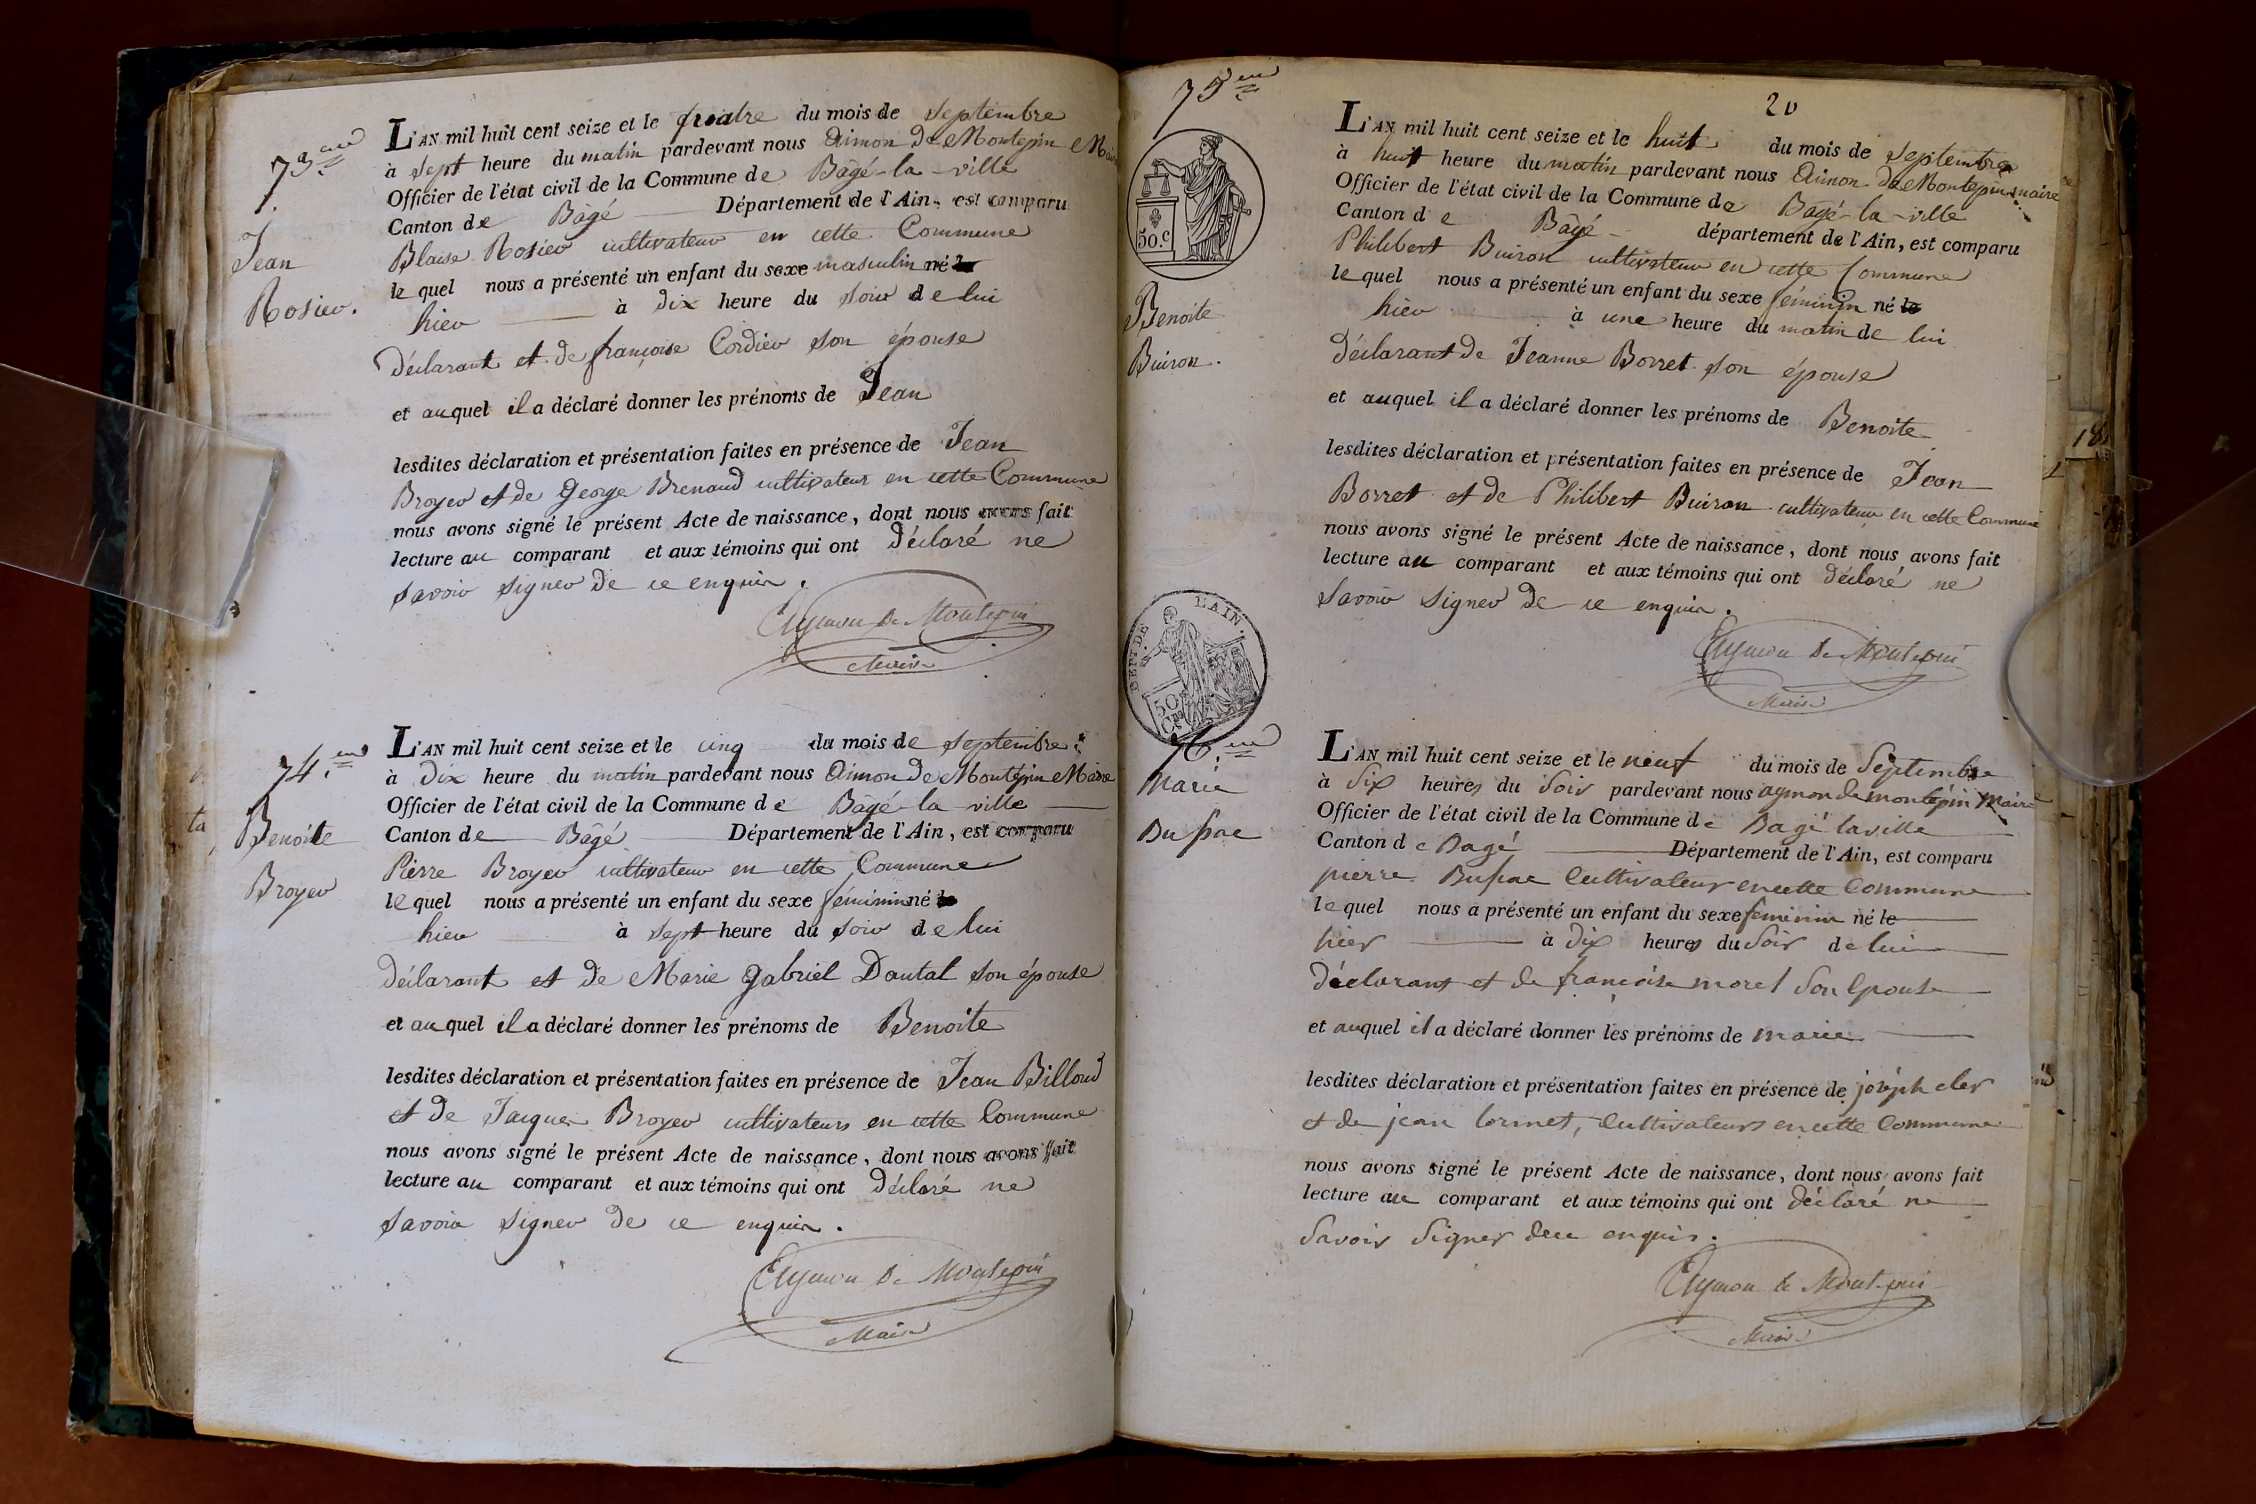 73.eme
Jean
Rosier.
L'AN mil huit cent seize et le quatre du mois de septembre
à sept heure du matin pardevant nous Aimon De Montepin Maire
Officier de l'état civil de la Commune de Bâgé-la-ville
Canton de Bâgé Département de l'Ain, est comparu
Blaise Rosier cultivateur en cette Commune
le quel nous a présenté un enfant du sexe masculin né le
hier à dix heure du soir de lui
Déclarant et de françoise Cordier son épouse
et auquel il a déclaré donner les prénoms de Jean
lesdites déclaration et présentation faites en présence de Jean
Broyer et de George Brenaud cultivateur en cette Commune
nous avons signé le présent Acte de naissance, dont nous avons fait
lecture au comparant et aux témoins qui ont Déclaré ne
savoir signer de ce enquis.
Aymon De Montepin
Maire
74.eme
Benoite
Broyer
L'AN mil huit cent seize et le cinq du mois de septembre
à Dix heure du matin pardevant nous Aimon De Montepin Maire
Officier de l'état civil de la Commune de Bâgé-la ville
Canton de Bâgé Département de l'Ain, est comparu
Pierre Broyer cultivateur en cette Commune
le quel nous a présenté un enfant du sexe féminin né le
hier à sept heure du soir de lui
Déclarant et de Marie Gabriel Dautal son épouse
et auquel il a déclaré donner les prénoms de Benoite
lesdites déclaration et présentation faites en présence de Jean Billoud
et de Jacques Broyer cultivateurs en cette Commune
nous avons signé le présent Acte de naissance, dont nous avons fait
lecture au comparant et aux témoins qui ont Déclaré ne
savoir signer de ce enquis.
Aymon De Montepin
Maire
20
75.eme
50.c
Benoite
Buiron.
L'AN mil huit cent seize et le huit du mois de septembre
à huit heure du matin pardevant nous Aimon De Montepin maire
Officier de l'état civil de la Commune de Bagé-la-ville
Canton de Bâgé département de l'Ain, est comparu
Philibert Buiron cultivateur en cette Commune
le quel nous a présenté un enfant du sexe féminin né le
hier à une heure du matin de lui
Déclarant de Jeanne Borret son épouse
et auquel il a déclaré donner les prénoms de Benoite
lesdites déclaration et présentation faites en présence de Jean
Borret et de Philibert Buiron cultivateur en cette Commune
nous avons signé le présent Acte de naissance, dont nous avons fait
lecture au comparant et aux témoins qui ont déclaré ne
Savoir signer de ce enquis.
Aymon De Montepin
Maire
DEPT. DE L'AIN.
50 Cs
76.eme
Marie
Dufrae
L'AN mil huit cent seize et le neuf du mois de Septembre
à Six heures du Soir pardevant nous aymon de montepin Maire
Officier de l'état civil de la Commune de Bagé laville
Canton de Bagé Département de l'Ain, est comparu
pierre Cultivateur en cette Commune
le quel nous a présenté un enfant du sexe feminin né le
hier à dix heures du Soir de lui
Déclarant et de françoise morel Son Epouse
et auquel il a déclaré donner les prénoms de marie
lesdites déclaration et présentation faites en présence de joseph cler
et de jean lormet, Cultivateurs en cette Commune
nous avons signé le présent Acte de naissance, dont nous avons fait
lecture au comparant et aux témoins qui ont déclaré ne
Savoir Signer de ce enquis.
Aymon de Montepin
Maire
18